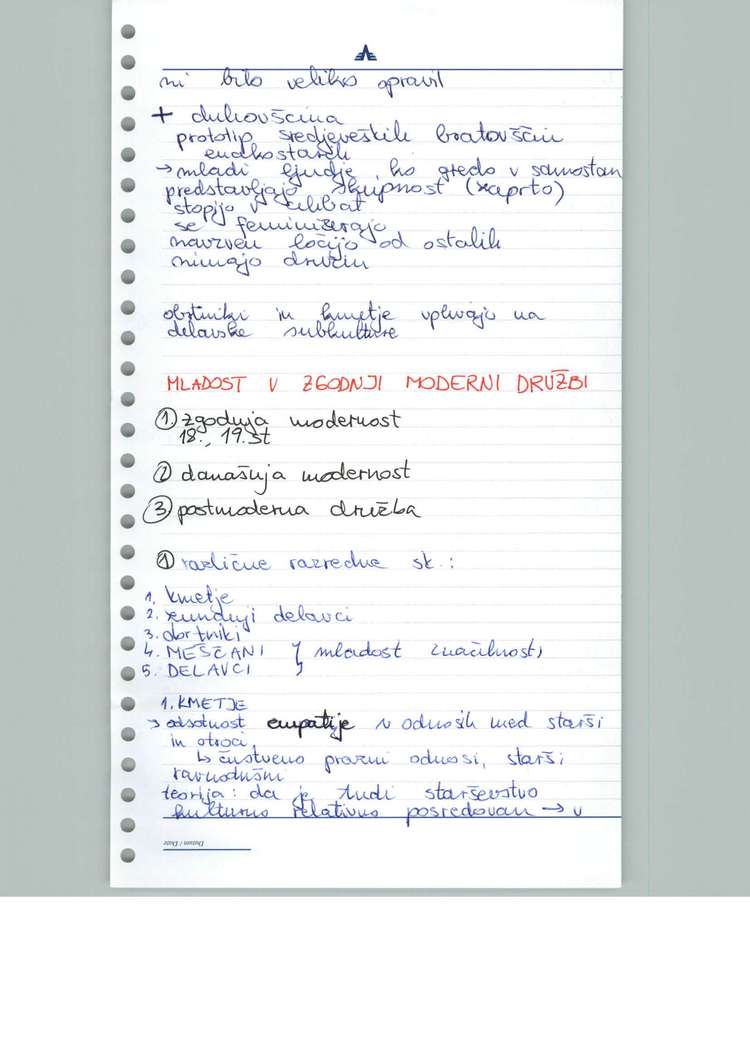 ni bilo veliko opravil
+ duhovščina
prototip srednjeveških bratovščin
enakostanih
→ mladi ljudje, ko gredo v samostan
predstavljajo skupnost (zaprto)
stopijo v celibat
se feminizirajo
navzven ločijo od ostalih
nimajo družin
obrtniki in kmetje vplivajo na
delavske subkulture
MLADOST V ZGODNJI MODERNI DRUŽBI
① zgodnja modernost
18., 19. st
② današnja modernost
③ postmoderna družba
① različne razredne sk.:
1. kmetje
2. zunanji delavci
3. obrtniki
4. MEŠČANI } mladost značilnosti
5. DELAVCI
1. KMETJE
→ odsotnost empatije v odnosih med starši
in otroci
↳ čustveno prazni odnosi, starši
ravnodušni
teorija: da je tudi starševstvo
kulturno relativno posredovan → v
Datum / Date